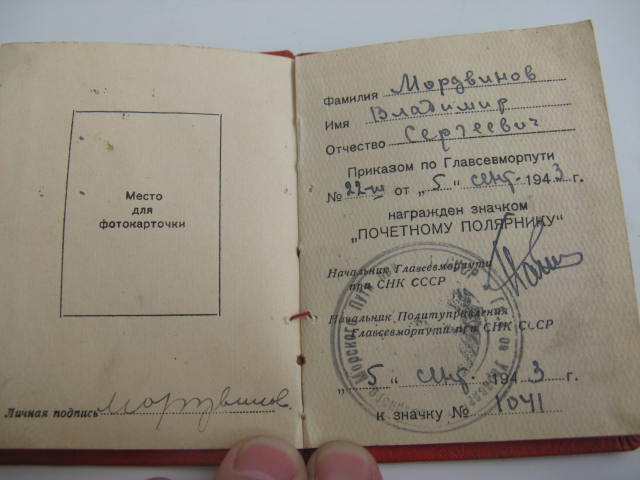 Место
для
фотокарточки
Личная подпись Мордвинов
Фамилия Мордвинов
Имя Владимир
Отчество Сергеевич
Приказом по Главсевморпути
№ 22-ш от „5“ сент. 1943 г.
награжден значком
„ПОЧЕТНОМУ ПОЛЯРНИКУ“
Начальник Главсевморпути
при СНК СССР
Начальник Политуправления
Главсевморпути при СНК СССР
„5“ сент. 1943 г.
к значку № 1041
Морского Пути